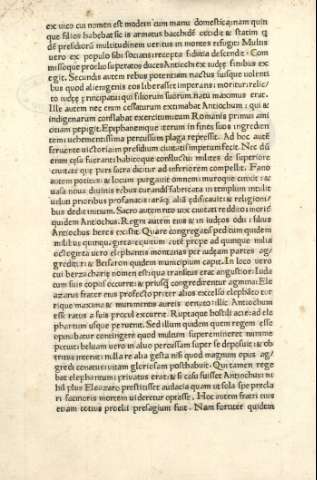 ex uico cui nomen est modeim cum manu domestica: nam quin
que filios habebat: sic is armatus bacchidē occidit: & statim ꝗ
dē presidioꝵ multitudinem ueritus in montes refugit: Multis
uero ex populo sibi sociatis: recepta fiducia descendit. Com
missoque proelio superatos duces Antiochi ex iudęę finibus ex
egit. Secundis autem rebus potentiam nactus suisque uolenti
bus quod alienigenis eos liberasset imperans: moritur: relic
to iudęę principatu: qui filiorum suorum natu maximus erat.
Ille autem nec enim cessaturum extimabat Antiochum: qui &
indigenarum conflabat exercitum: cum Romanis primus ami
citiam pepigit. Epiphanemque iterum in fines suos ingredien
tem: uehementissima percussum plaga repressit. Ad hoc autē
feruente uictoria: in presidium ciuitatis impetum fecit. Nec dū
enim cęsa fuerant: habitoque conflictu: milites de superiore
ciuitate que pars sacra dicitur ad inferiorem compellit. Fano
autem potitus: & locum purgauit omnem: muroque cinxit: &
uasa noua diuinis rebus curandis fabricata in templum intulit
uelut prioribus profanatis: arāque aliā edificauit: & religioni
bus dedit initium. Sacro autem ritu uix ciuitati reddito: morit̃
quidem Antiochus. Regni autem eius & in iudęos odii: filius
Antiochus heres existit. Quare congregatis peditum quidem
milibus quinquaginta: equitum autē prope ad quinque milia
octogīta uero elephantis: montanas per iudęam partes ag
greditur: & Betsuron quidem municipium capit. In loco uero
cui berzacharię nomen est: qua transitus erat angustior: Iuda
cum suis copiis occurrit: & priusꝗ congrederentur agmina: Ele
azarus frater eius prospecto preter alios excelso elephāto tur
rique maxima & munimentis aureis ornato: illic Antiochum
esse ratus a suis procul excurrit. Ruptaque hostili acie: ad ele
phantum usque peruenit. Sed illum quidem quem regem esse
opinabatur contingere quod multum supereminebat nimime
potuit: beluam uero in aluo percussam super se deposuit: & ob
tritus interiit: nulla re alia gesta nisi quod magnum opus ag/
gredi conatus: uitam glorię posthabuit. Qui tamen rege
bat elephantum: priuatus erat: & si casu fuisset Antiochus: ni
hil plus Eleazaro prestitisset audacia quam ut sola spe precla
ri facinoris mortem uideretur optasse. Hoc autem fratri eius
etiam totius proelii presagium fuit. Nam fortiter quidem